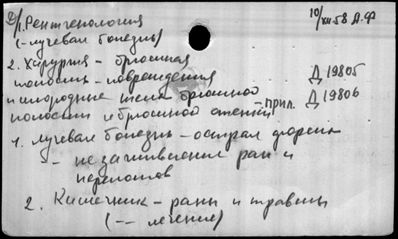 1. Рентгенология
10/XII 58 Д.Ф
(-лучевая болезнь)
2. Хирургия - брюшная
полость - повреждения
Д 19805
и инородные тела брюшной
Д 19806
полости и брюшной стенки - прил.
1. лучевая болезнь - острая форма
- незаживления ран и
переломов
2. Кишечник - раны и травмы
(-- лечение)